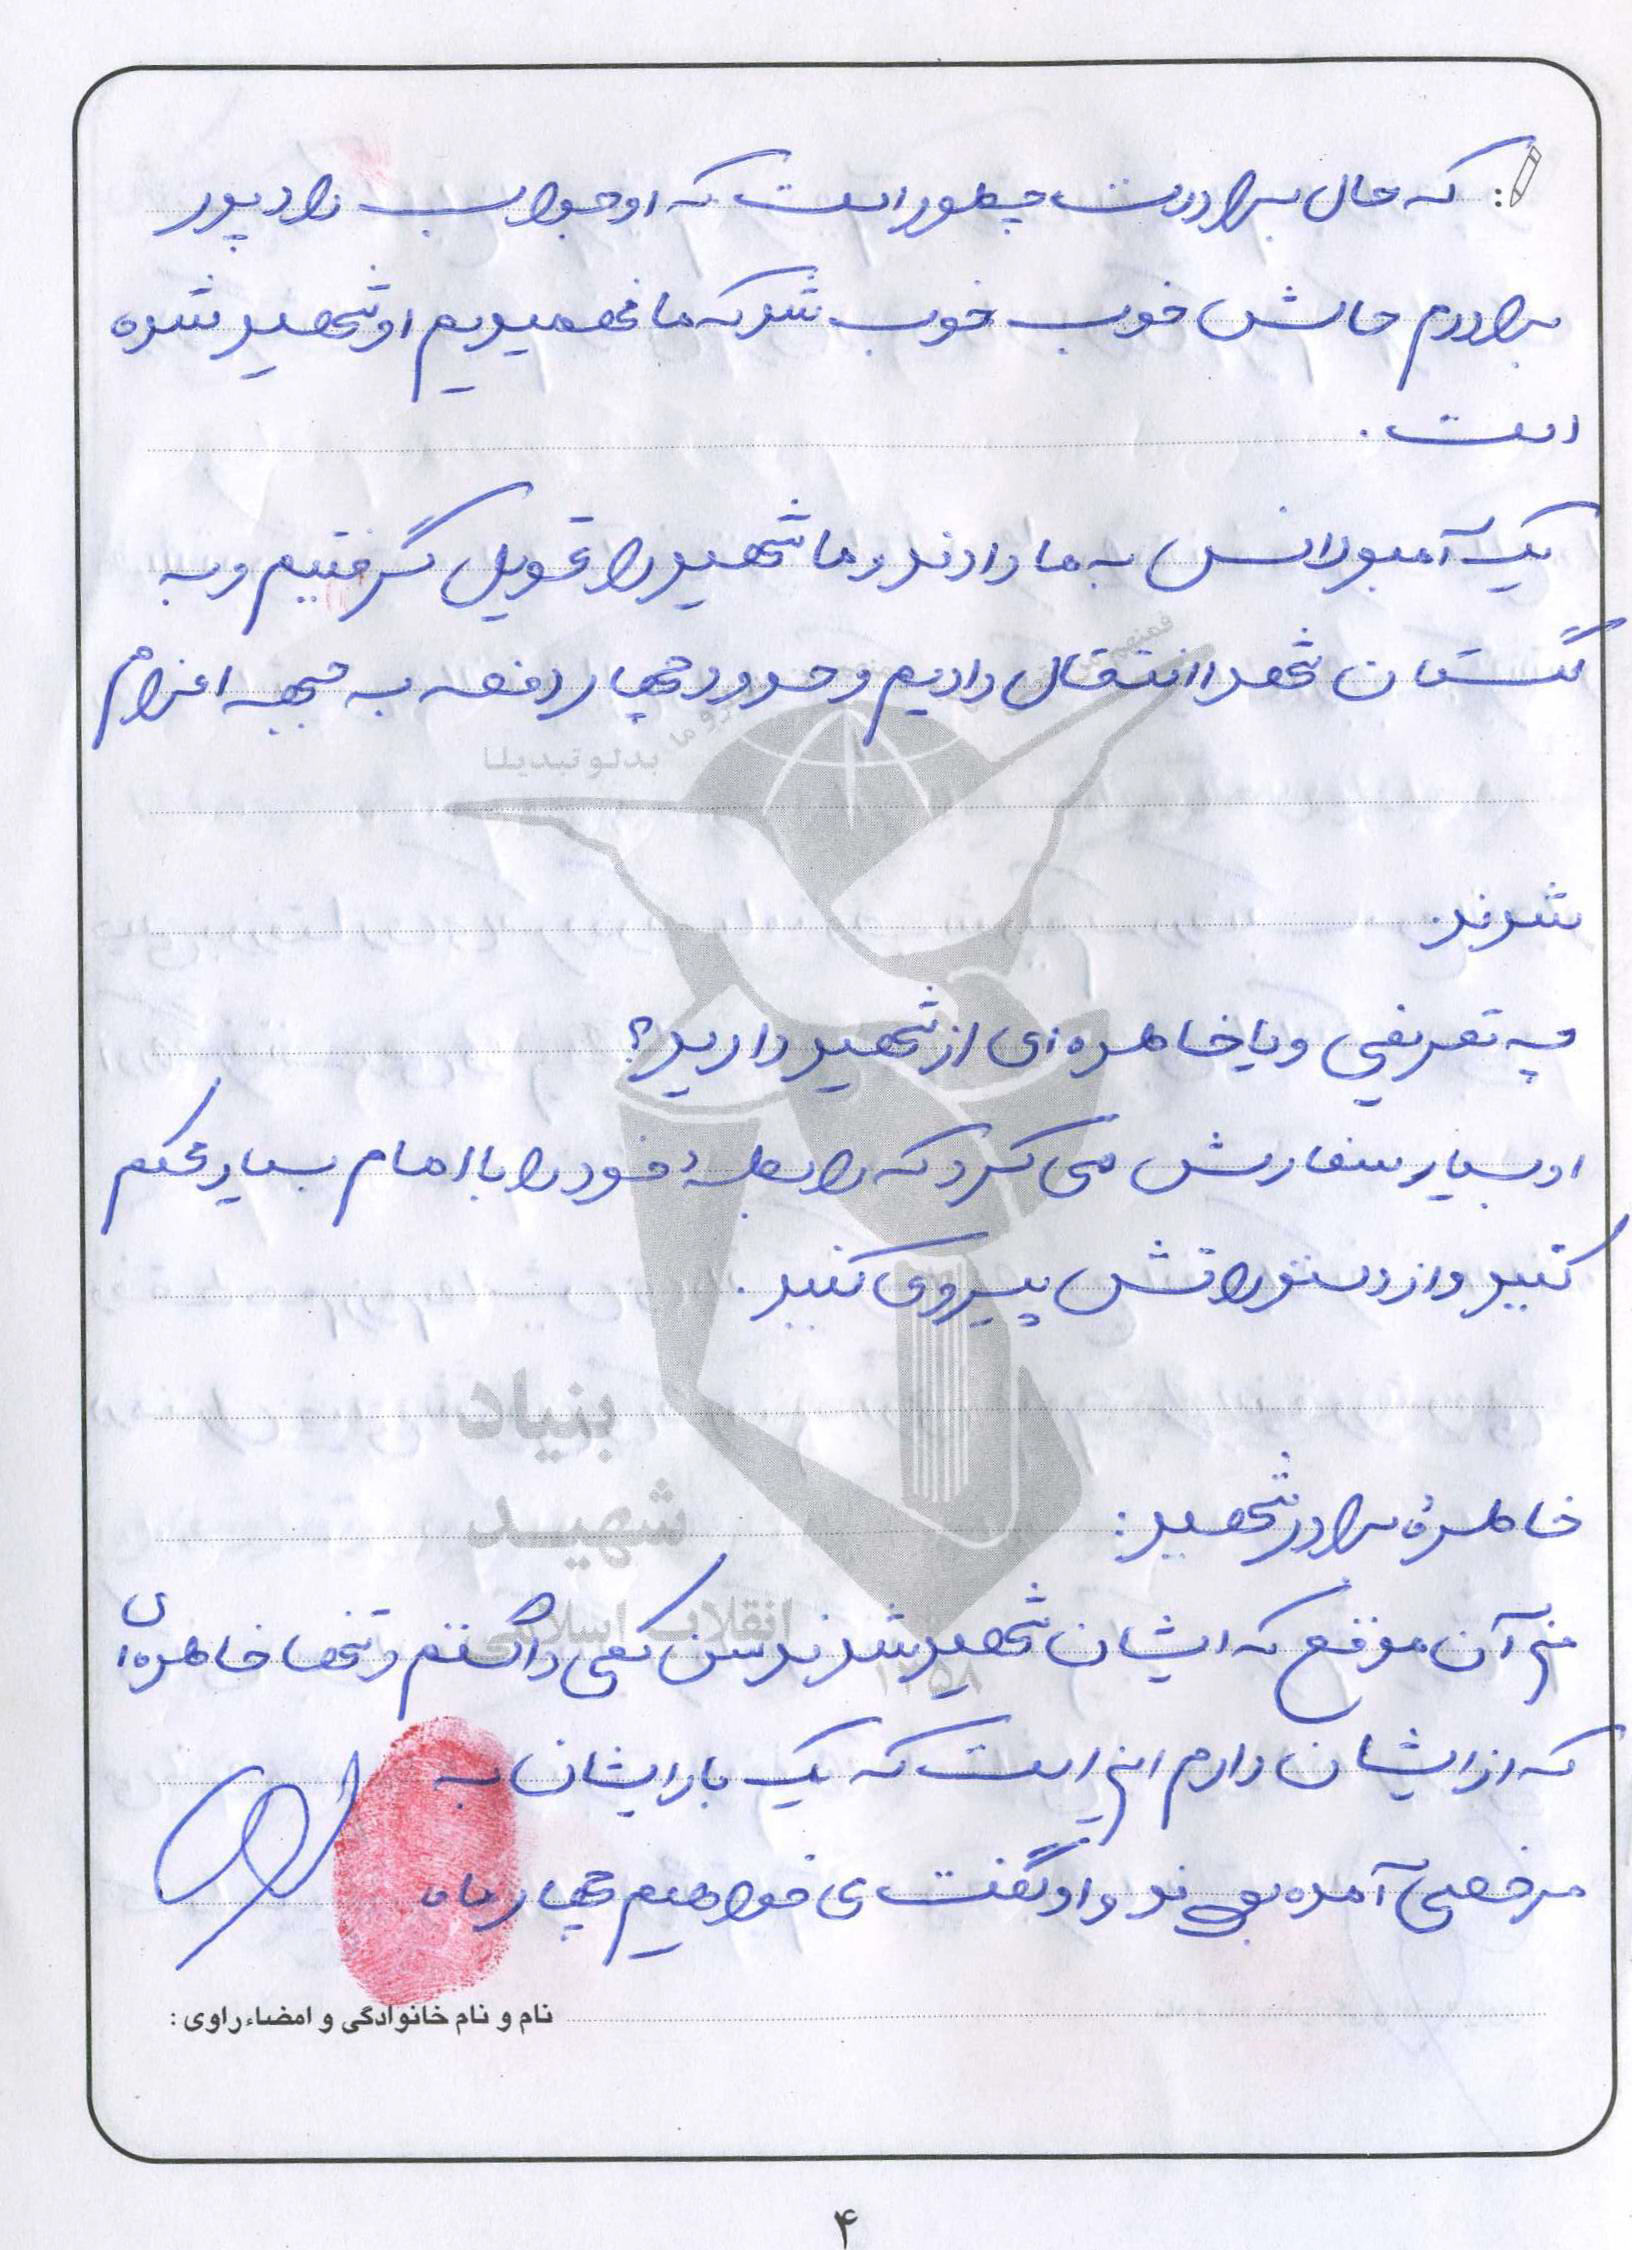 که حال برادرت چطور است که او جواب داد پدر
برادرم حالش خوب خوب شد که ما فهمیدیم او شهید شده
است.
یک آمبولانس به ما دادند و ما شهید را تحویل گرفتیم و به
گلستان شهدا انتقال دادیم و حدود چهار دفعه به جبهه اعزام
بدلو تبدیلا
شدند.
چه تعریفی و یا خاطره ای از شهید دارید؟
او بسیار سفارش می کرد که رابطهٔ خود را با امام بسیار محکم
کنید و از دستوراتش پیروی کنید.
بنیاد
شهید
انقلاب اسلامی
۱۳۵۸
خاطرهٔ برادر شهید:
من آن موقع که ایشان شهید شدند سن کمی داشتم و تنها خاطره ای
که از ایشان دارم این است که یک بار ایشان به
مرخصی آمده بودند و او گفت ی خواهیم چهار ماه
نام و نام خانوادگی و امضاء راوی:
۴